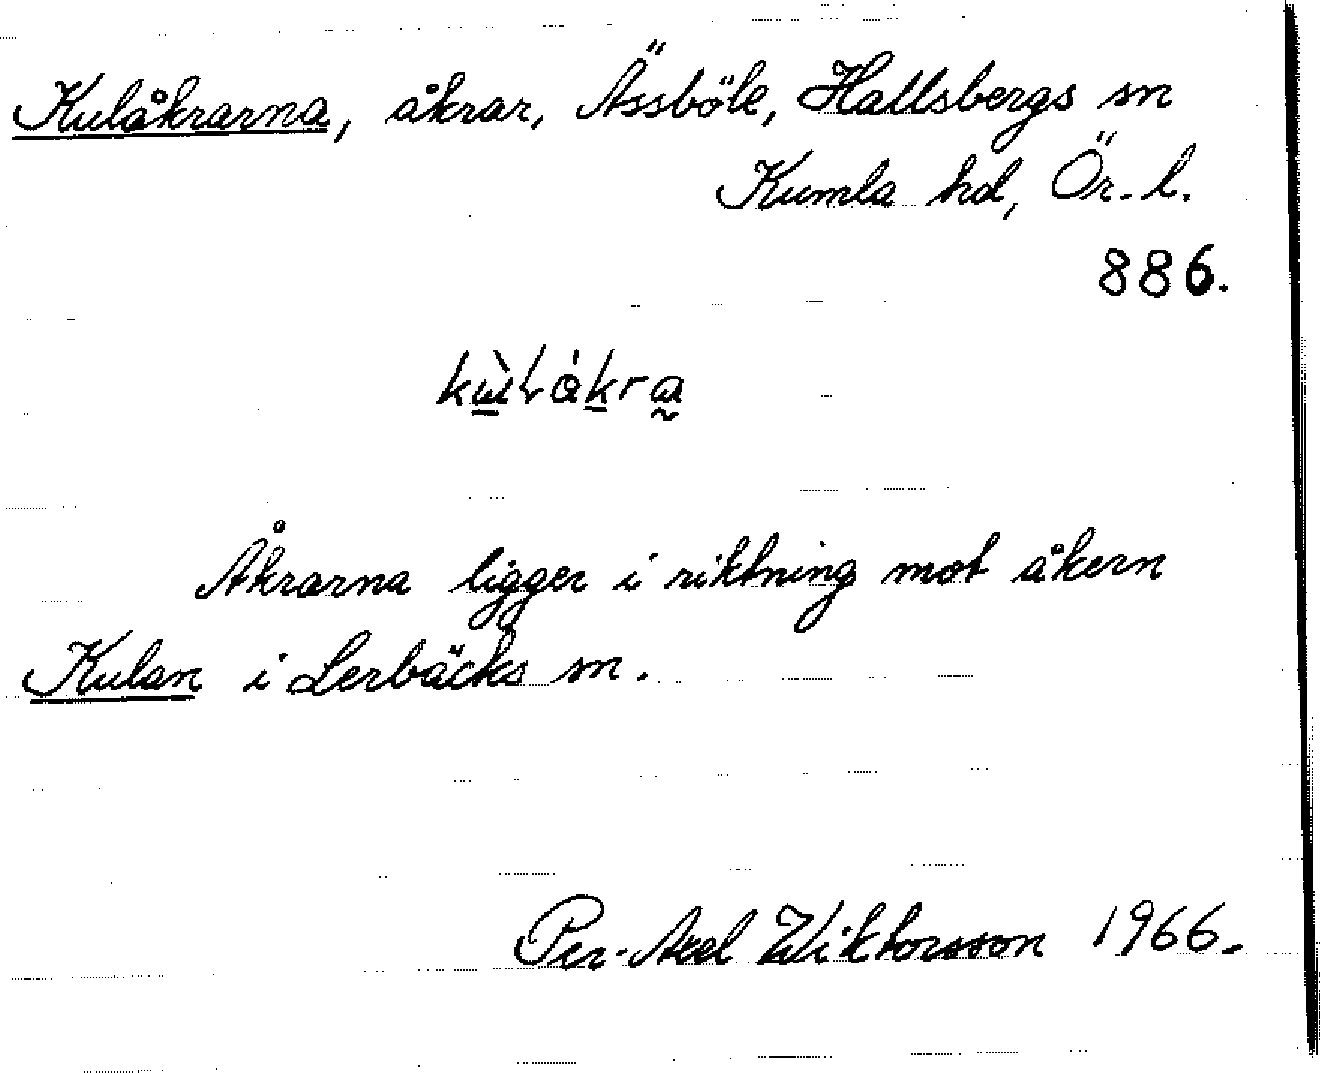 Kulåkrarna, åkrar, Ässböle, Hallsbergs sn
Kumla hd, Ör. l.
886.
Åkrarna ligger i riktning mot åkern
Kulan i Lerbäcks sn.
Per-Axel Wiktorsson 1966.